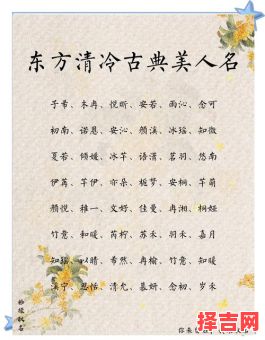 东方清冷古典美人名
于希、木冉、悦昕、安若、雨沁、念可
初南、诺恩、安沁、颜溪、冰瑶、知微
夏若、倾媛、冰芊、语潇、茗羽、悠南
伊苒、芊伊、亦朵、栀梦、安桐、芊萌
颜悦、雅一、文妤、佳曼、冉湘、桐娅
竹意、和暖、芮柠、苏禾、羽禾、嘉月
知瑶、以晴、希然、冉榆、竹意、知暖
溪宁、恩恬、清允、慕妍、念初、岁禾
择吉网